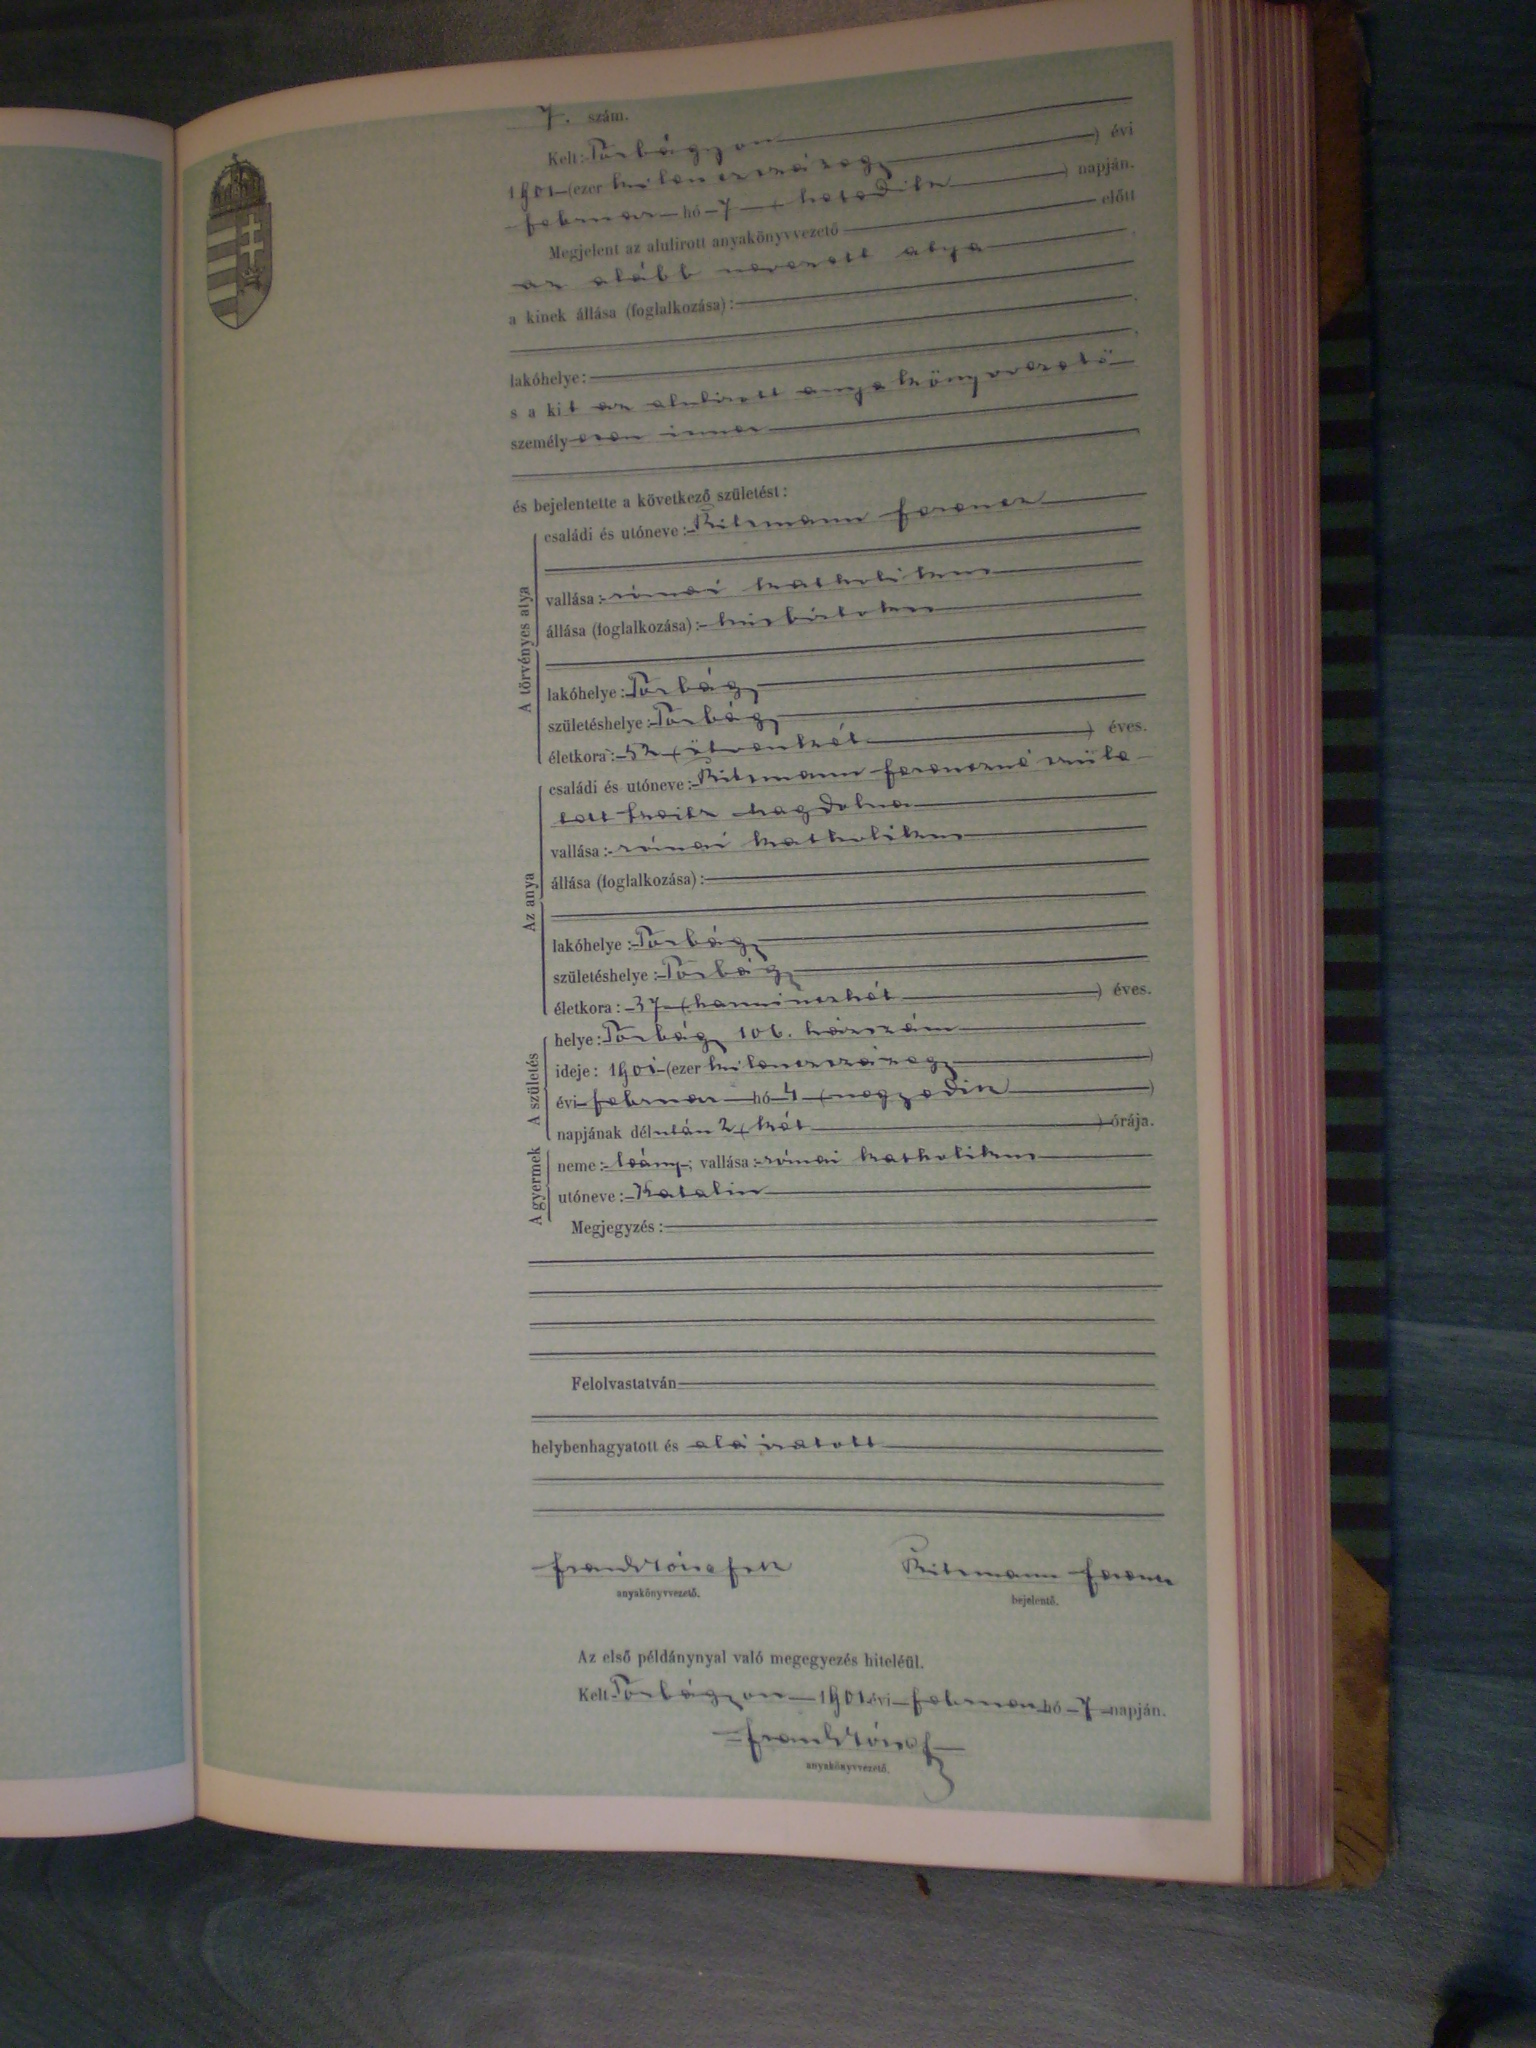 7. szám.
Kelt: Torbágyon
1901 (ezer kilenczszázegy) évi
februar hó 7 (hetedik) napján.
Megjelent az alulirott anyakönyvvezető előtt
az alább nevezett atya
a kinek állása (foglalkozása):
lakóhelye:
s a kit az alulirott anyakönyvvezető
személyesen ismer
és bejelentette a következő születést:
A törvényes atya
családi és utóneve: Ritzmann Ferencz
vallása: római katholikus
állása (foglalkozása): kisbirtokos
lakóhelye: Torbágy
születéshelye: Torbágy
életkora: 52 (ötvenkét) éves.
Az anya
családi és utóneve: Ritzmann Ferenczné szüle
tett Magdolna
vallása: római katholikus
állása (foglalkozása):
lakóhelye: Torbágy
születéshelye: Torbágy
életkora: 37 ( ) éves.
A születés
helye: Torbágy 106. házszám
ideje: 1901 (ezer kilenczszázegy)
évi februar hó 4 (negyedik)
napjának délután 2 (két) órája.
A gyermek
neme: leány; vallása: római katholikus
utóneve: Katalin
Megjegyzés:
Felolvastatván
helybenhagyatott és aláiratott
Frank József
anyakönyvvezető.
Ritzmann Ferencz
bejelentő.
Az első példánynyal való megegyezés hiteléül.
Kelt Torbágyon 1901 évi februar hó 7 napján.
Frank József
anyakönyvvezető.